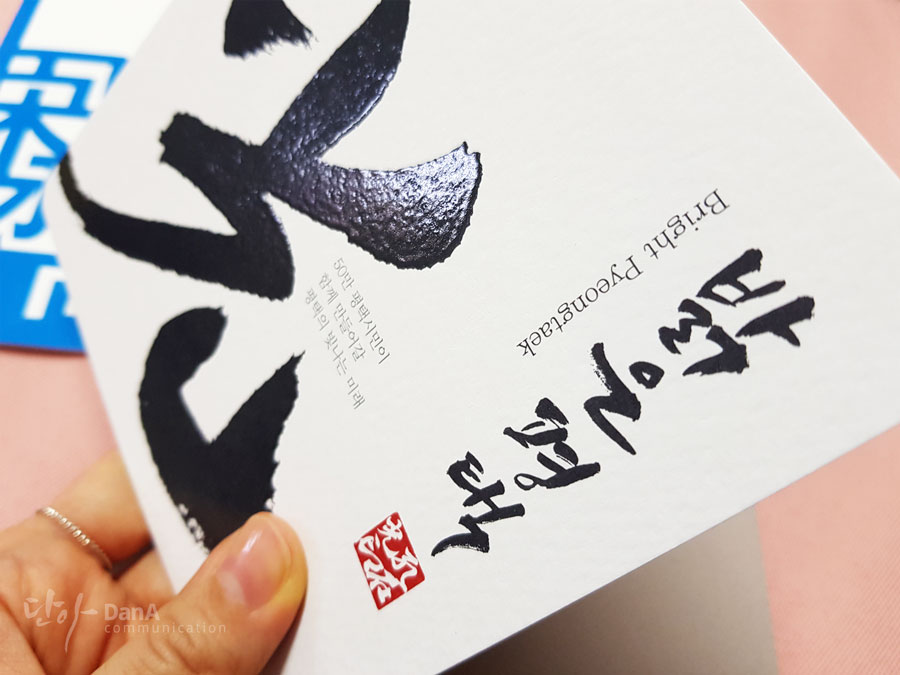 Bright Pyeongtaek
밝은 평택
50만 평택시민이
함께 만들어갈
평택의 빛나는 미래
단아 DanA
communication